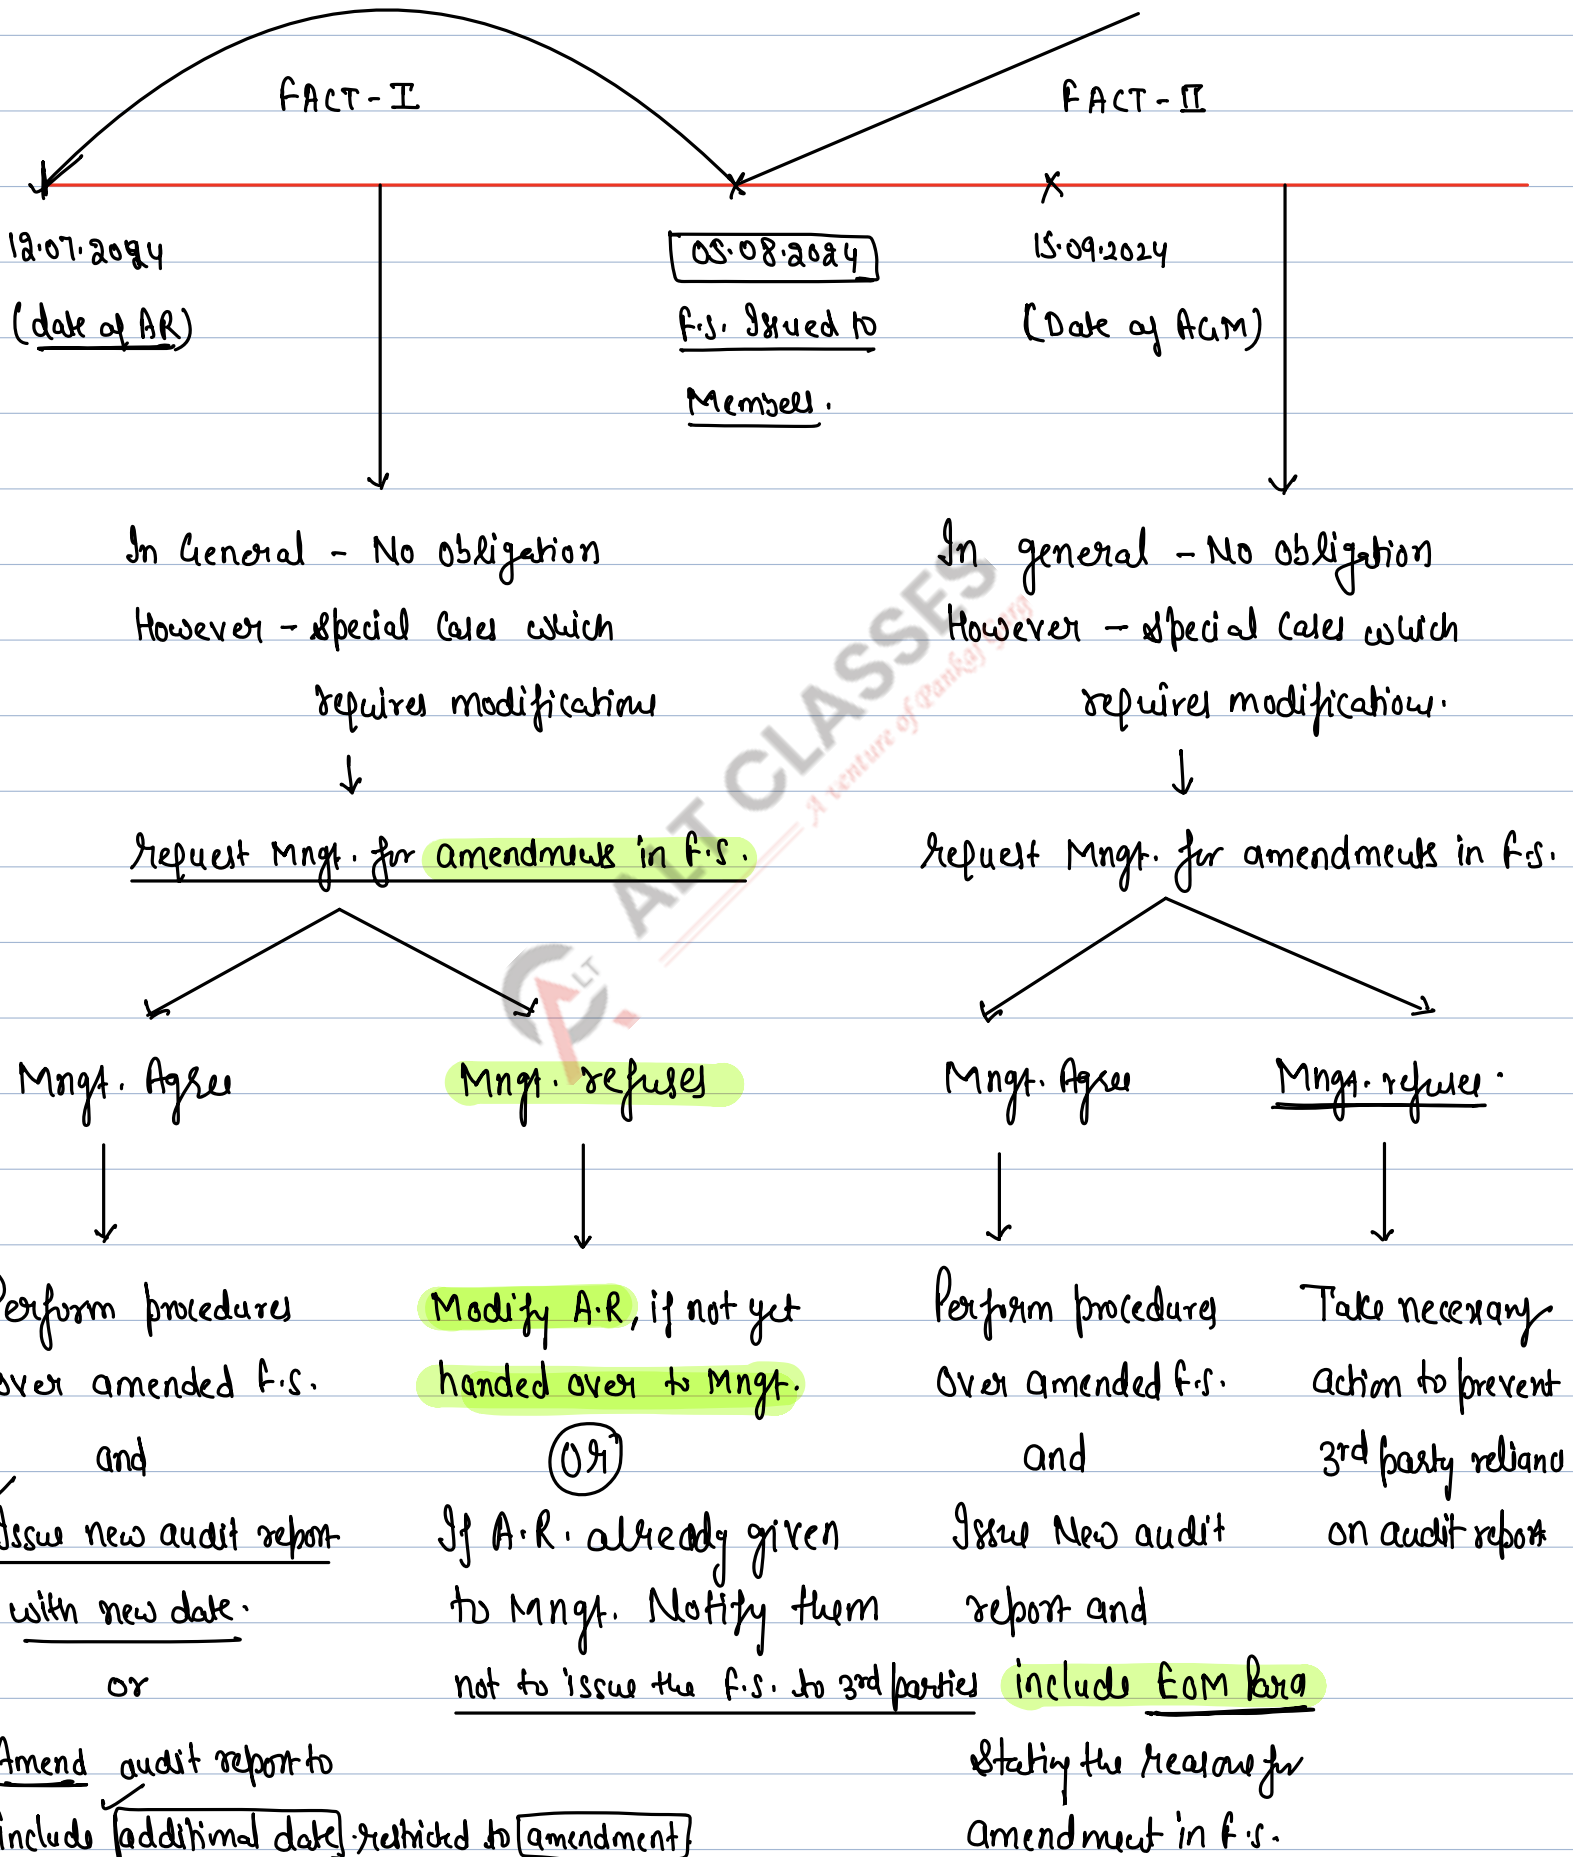 FACT-I
FACT-II
12.07.2024
(date of AR)
05.08.2024
F.S. Issued to
Members.
15.09.2024
(Date of AGM)
In General - No obligation
However - special cases which
requires modifications
↓
request Mngt. for amendments in F.S.
Mngt. Agree
Mngt. refuses
Perform procedures
over amended F.S.
and
Issue new audit report
with new date.
or
Amend audit report to
include additional date restricted to amendment
Modify A.R, if not yet
handed over to Mngt.
OR
If A.R. already given
to Mngt. Notify them
not to issue the F.S. to 3rd parties
In general - No obligation
However - special cases which
requires modifications.
↓
request Mngt. for amendments in F.S.
Mngt. Agree
Mngt. refuses.
Perform procedures
over amended F.S.
and
Issue New audit
report and
include EOM Para
Stating the reasons for
amendment in F.S.
Take necessary
action to prevent
3rd party relianc
on audit report
ALT CLASSES
A venture of Pankaj Garg
LT